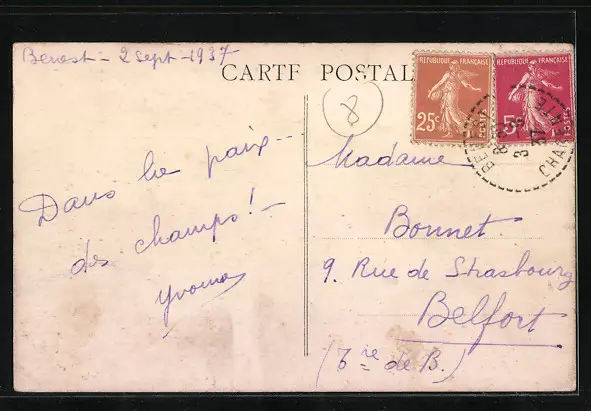 Benest - 2 sept - 1937
CARTE POSTALE
8
REPUBLIQUE FRANÇAISE
25c
POSTES
REPUBLIQUE FRANÇAISE
5c
POSTES
Dans la paix --
des champs! -
Yvonne
Madame
Bonnet
9. Rue de Strasbourg
Belfort
(Tire de B.)